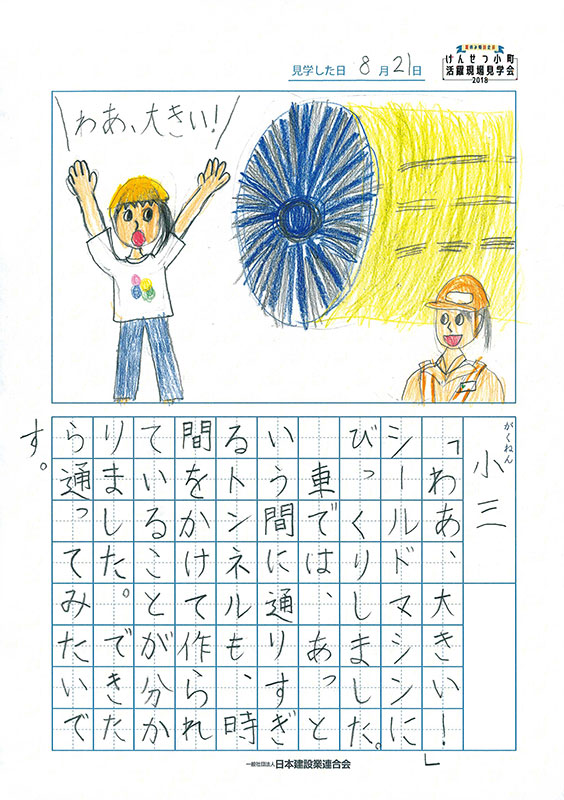 夏休み特別企画
けんせつ小町
活躍現場見学会
2018
見学した日 8月21日
わあ、大きい!
がくねん
小三
「わあ、大きい!」
シールドマシンに
びっくりしました。
車では、あっと
いう間に通りすぎ
るトンネルも、時
間をかけて作られ
ていることが分か
りました。できた
ら通ってみたいで
す。
一般社団法人 日本建設業連合会